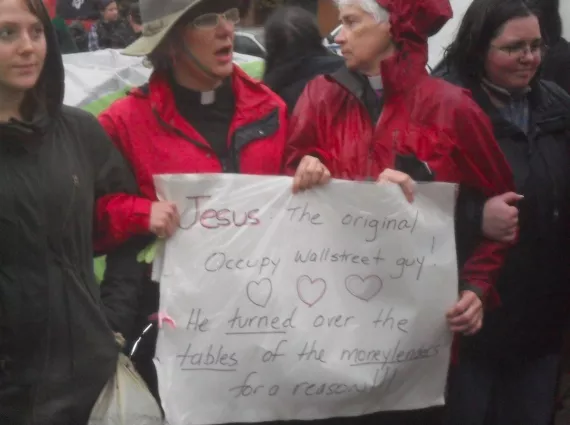 Jesus: The original
Occupy Wallstreet guy!
He turned over the
tables of the moneylenders
for a reason!!!